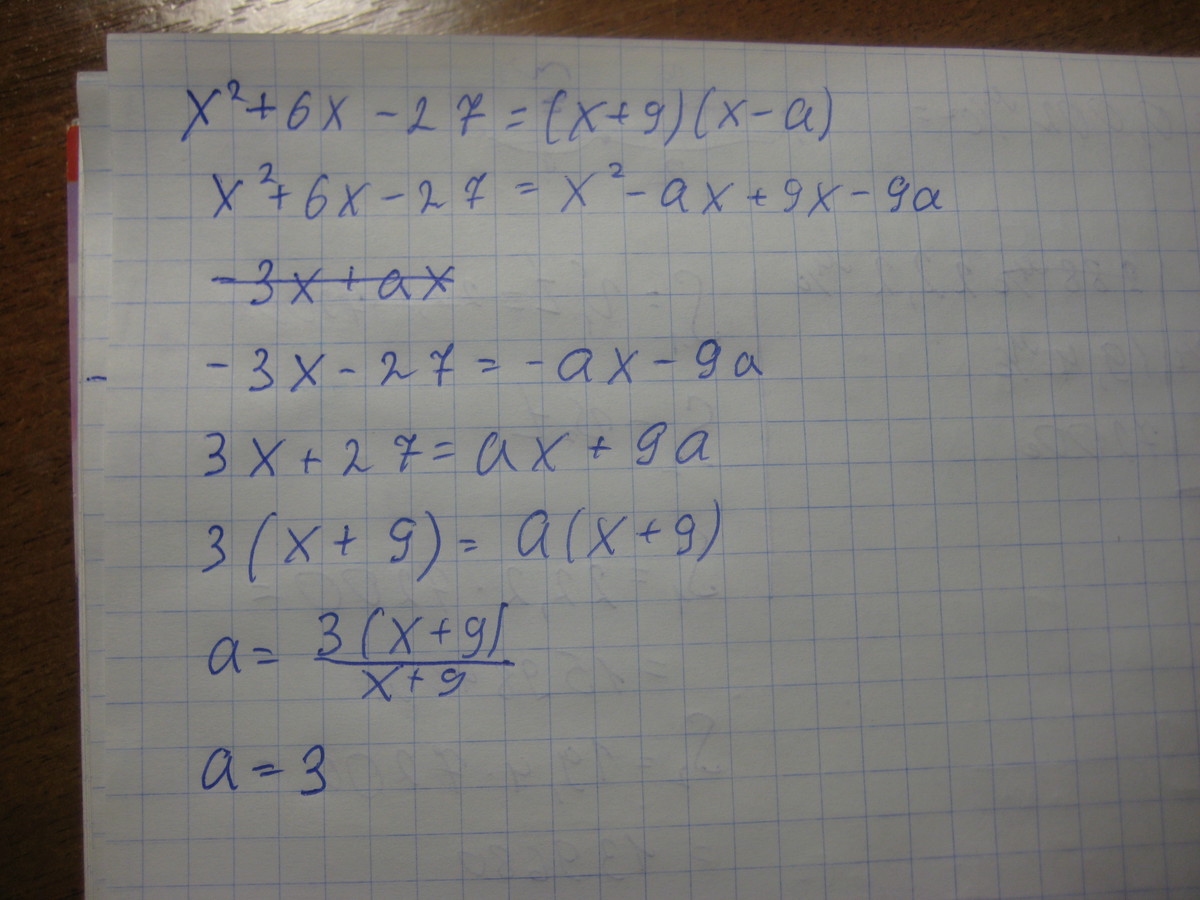 x²+6x-27=(x+9)(x-a)
x²+6x-27=x²-ax+9x-9a
-3x+ax
-3x-27=-ax-9a
3x+27=ax+9a
3(x+9)=a(x+9)
a=3(x+9)/x+9
a=3